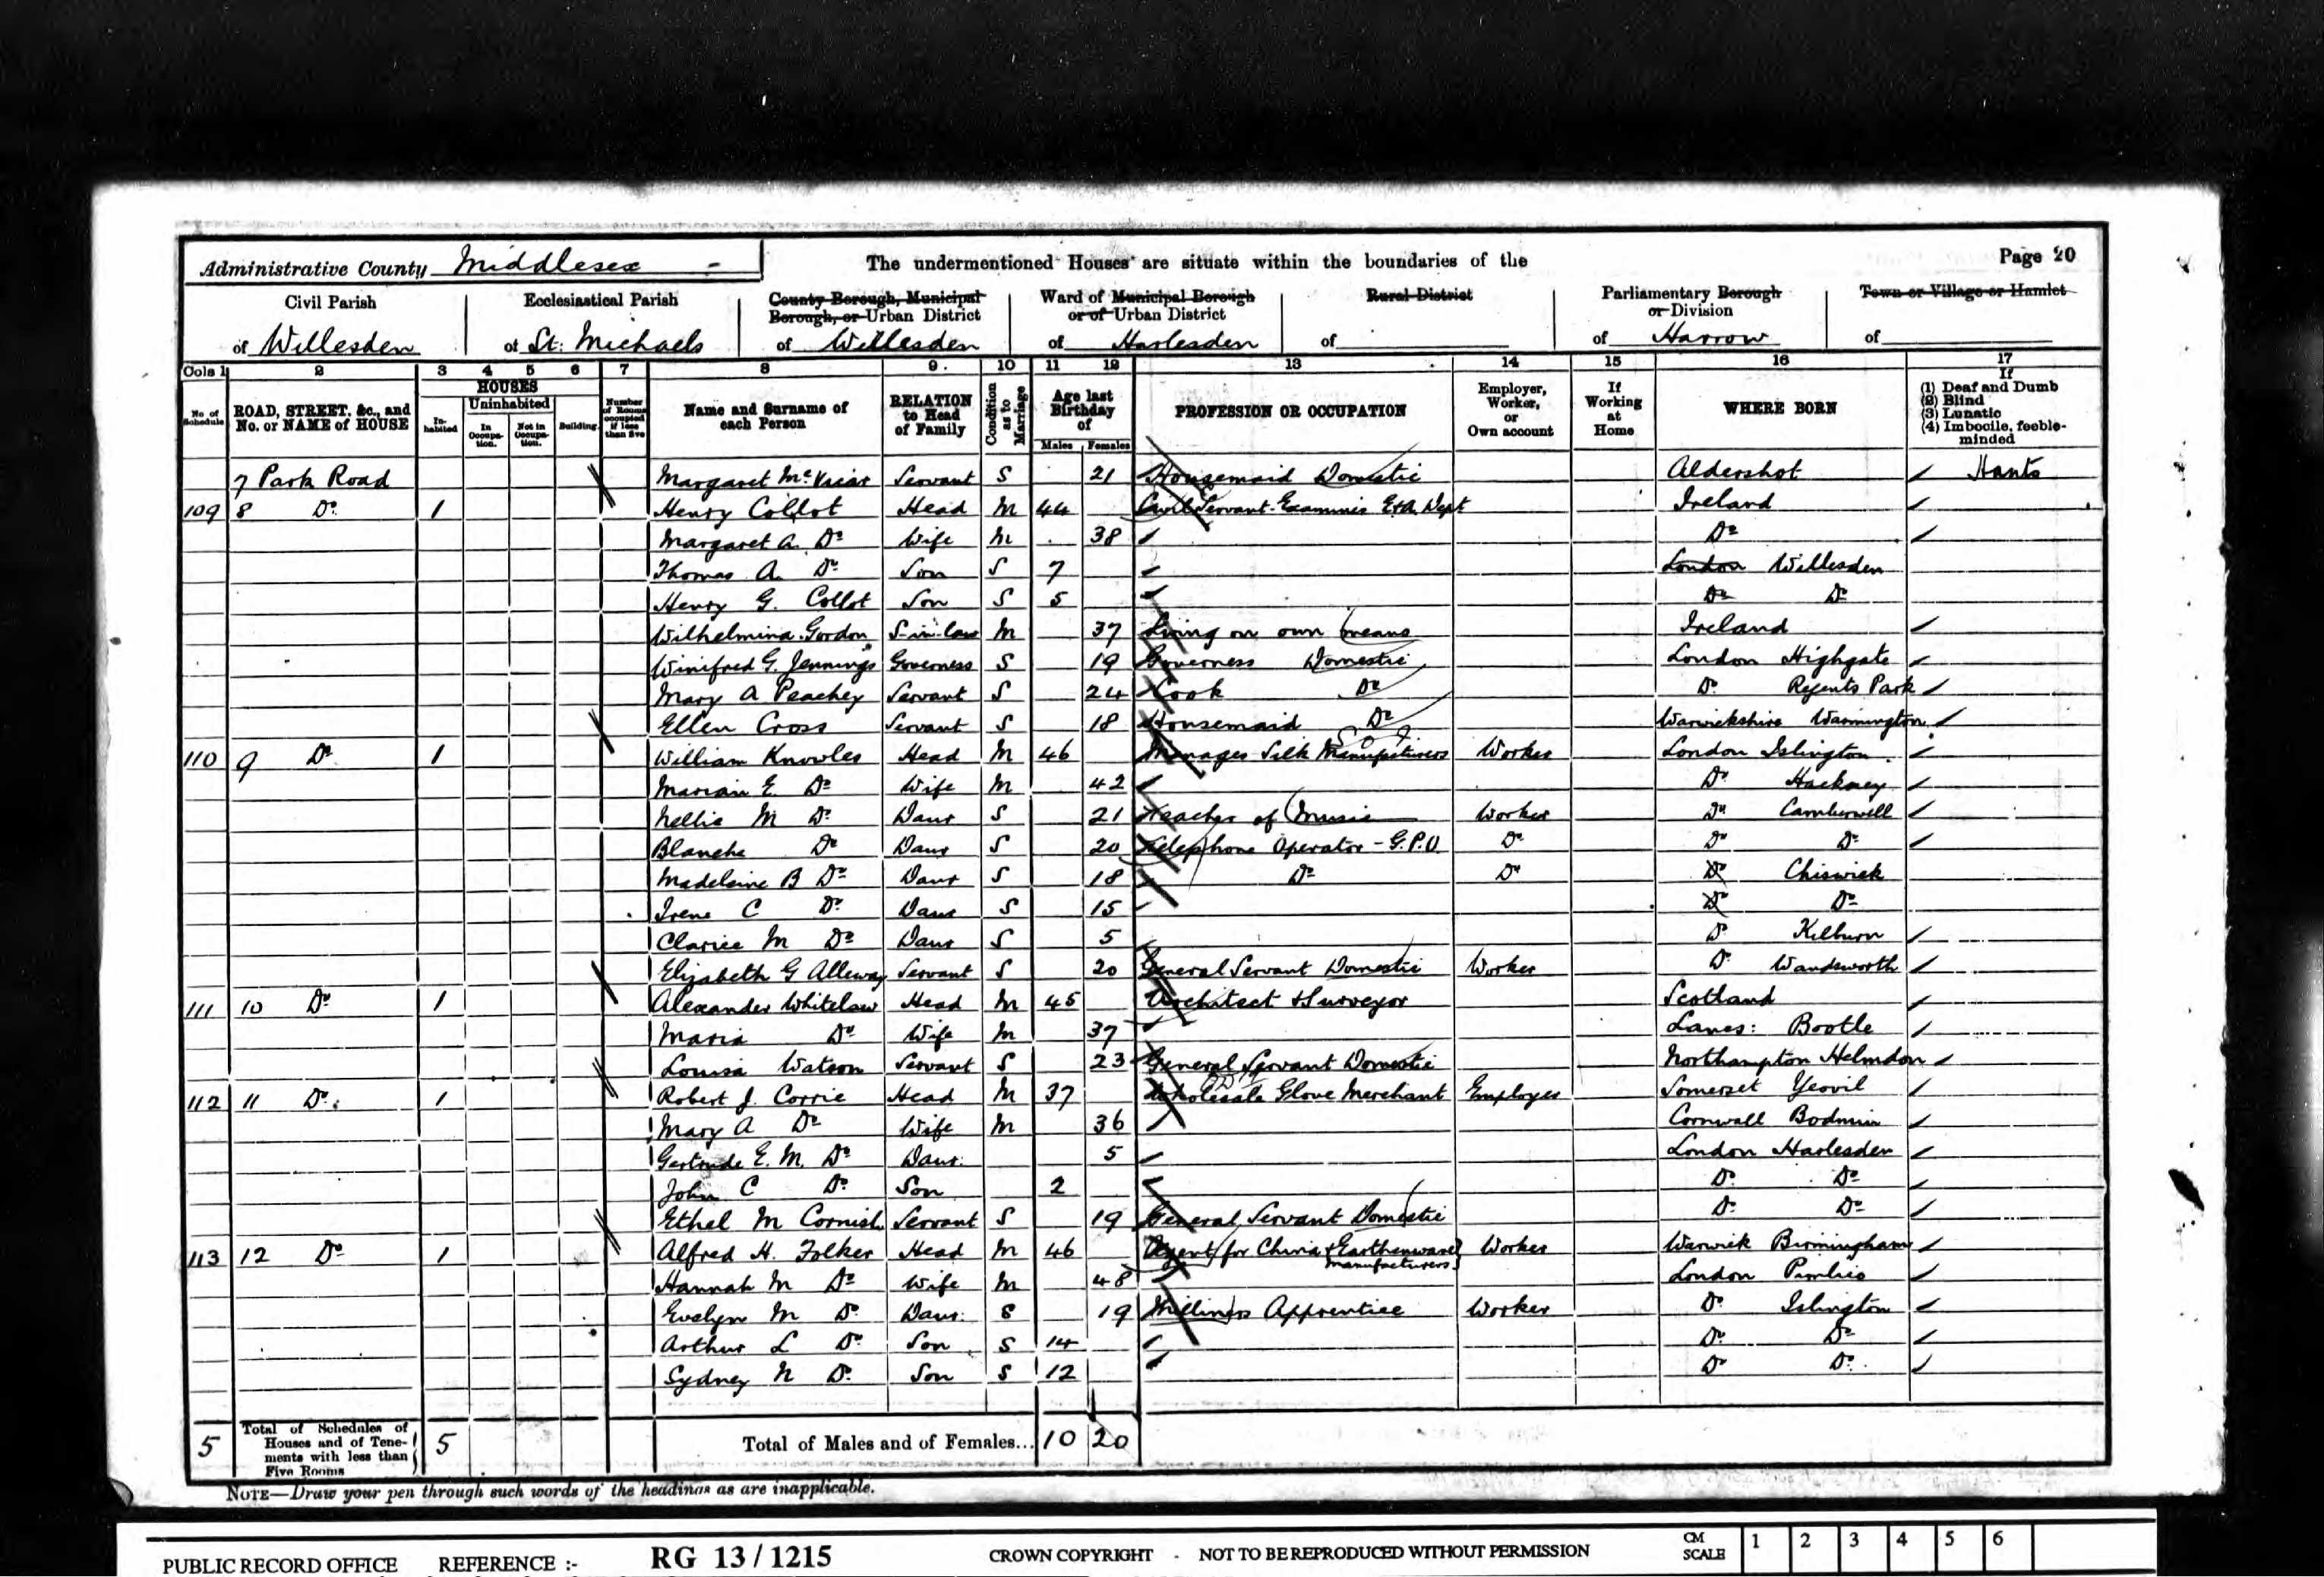 Administrative County Middlesex
The undermentioned Houses are situate within the boundaries of the
Page 20
Civil Parish of Willesden
Ecclesiastical Parish of St. Michaels
County Borough, Municipal Borough, or Urban District of Willesden
Ward of Municipal Borough or of Urban District of Harlesden
Rural District of
Parliamentary Borough or Division of Harrow
Town or Village or Hamlet of
Cols 1 2 3 4 5 6 7 8 9 10 11 12 13 14 15 16 17
No. of Schedule
ROAD, STREET, &c., and No. or NAME of HOUSE
HOUSES
Inhabited
Uninhabited
In Occupation.
Not in Occupation.
Building.
Number of Rooms occupied if less than five
Name and Surname of each Person
RELATION to Head of Family
Condition as to Marriage
Age last Birthday of
Males Females
PROFESSION OR OCCUPATION
Employer, Worker, or Own account
If Working at Home
WHERE BORN
If
(1) Deaf and Dumb
(2) Blind
(3) Lunatic
(4) Imbecile, feeble-minded
7 Park Road Margaret Servant S 21 Housemaid Domestic Aldershot Hants
109 8 Do 1 Henry Collot Head M 44 Civil Servant Examiner E+A Dept Ireland
Margaret A. Do Wife M 38 Do
Thomas A. Do Son S 7 London Willesden
Henry G. Collot Son S 5 Do Do
Wilhelmina Gordon S-in-law M 37 Living on own means Ireland
Winifred G. Jennings Governess S 19 Governess Domestic London Highgate
Mary A Peachey Servant S 24 Cook Do Do Regents Park
Ellen Cross Servant S 18 Housemaid Do Warwickshire Warmington
110 9 Do 1 William Knowles Head M 46 Manager Silk Manufacturers Worker London Islington
Marian E. Do Wife M 42 Do Hackney
Nellie M Do Daur S 21 Teacher of Music Worker Do Camberwell
Blanche Do Daur S 20 Telephone Operator - G.P.O. Do Do Do
Madeleine B Do Daur S 18 Do Do Do Chiswick
Irene C Do Daur S 15 Do Do
Clarice M Do Daur S 5 Do Kilburn
Elizabeth G Alleway Servant S 20 General Servant Domestic Worker Do Wandsworth
111 10 Do 1 Alexander Whitelaw Head M 45 Architect & Surveyor Scotland
Maria Do Wife M 37 Lancs: Bootle
Louisa Watson Servant S 23 General Servant Domestic Northampton Helmdon
112 11 Do 1 Robert J. Corrie Head M 37 Wholesale Glove Merchant Employer Somerset Yeovil
Mary A Do Wife M 36 Cornwall Bodmin
Gertrude E. M. Do Daur. 5 London Harlesden
John C Do Son 2 Do Do
Ethel M Cornish Servant S 19 General Servant Domestic Do Do
113 12 Do 1 Alfred H. Folker Head M 46 Agent for China & Earthenware Manufacturers Worker Warwick Birmingham
Hannah M Do Wife M 48 London Pimlico
Evelyn M Do Daur. S 19 Milliners Apprentice Worker Do Islington
Arthur L Do Son S 14 Do Do
Sydney N Do Son S 12 Do Do
5 Total of Schedules of Houses and of Tenements with less than Five Rooms 5 Total of Males and of Females... 10 20
NOTE—Draw your pen through such words of the headings as are inapplicable.
PUBLIC RECORD OFFICE REFERENCE :- RG 13/1215 CROWN COPYRIGHT - NOT TO BE REPRODUCED WITHOUT PERMISSION CM SCALE 1 2 3 4 5 6